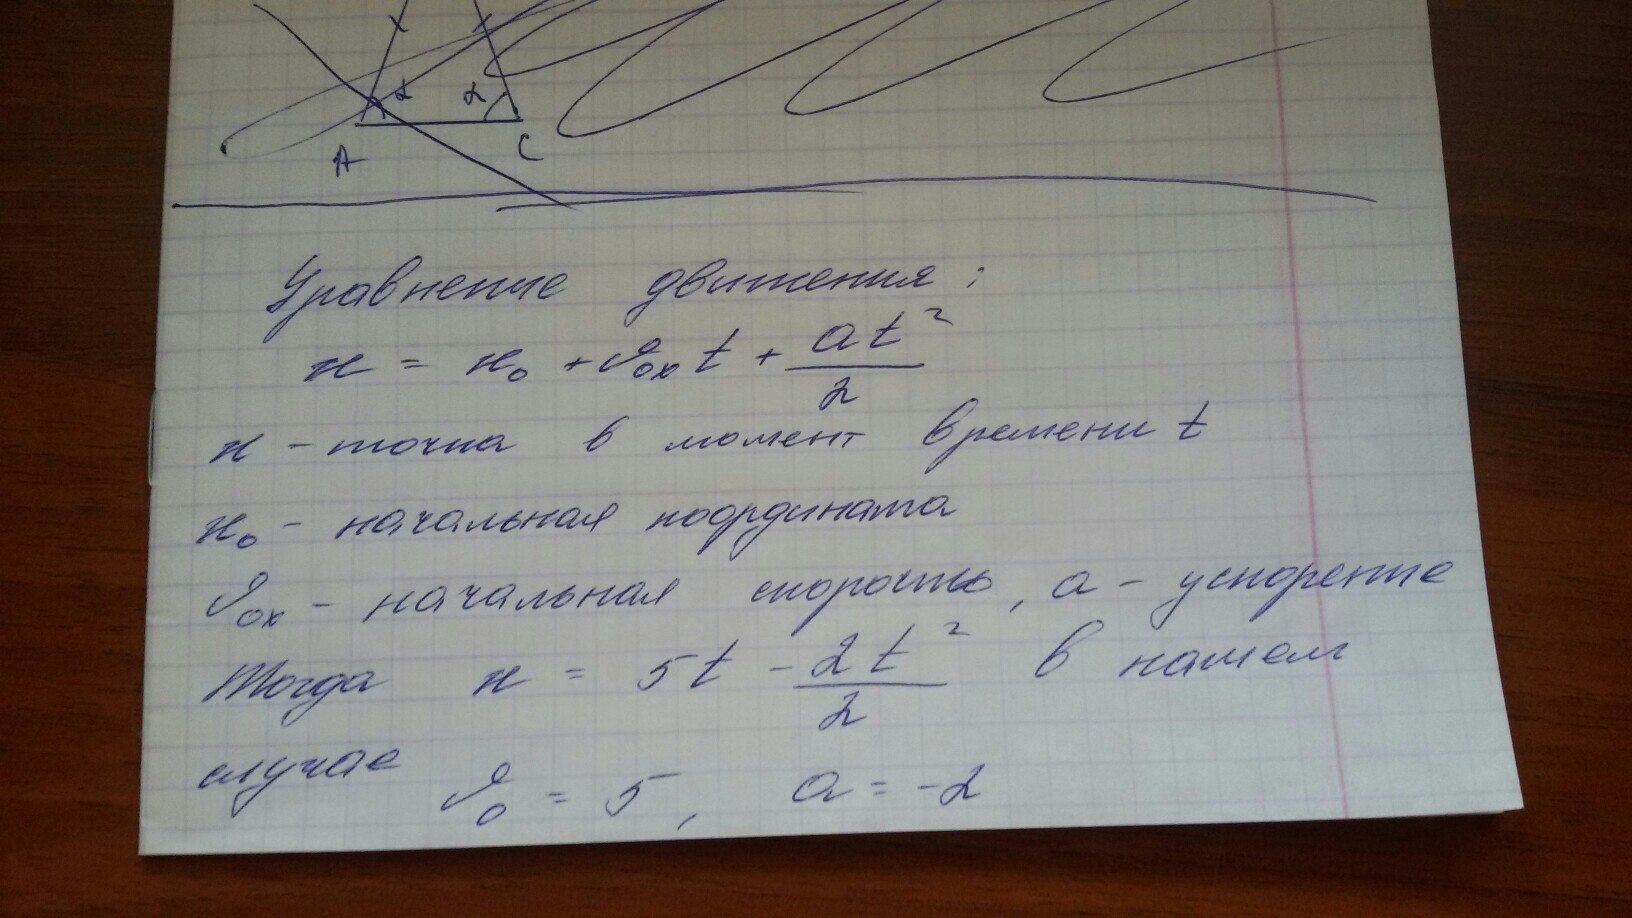 α α
A C
Уравнение движения:
x = x₀ + v₀ₓt + at²/2
x - точка в момент времени t
x₀ - начальная координата
v₀ₓ - начальная скорость, a - ускорение
Тогда x = 5t - 2t²/2 в нашем
случае
v₀ = 5, a = -2